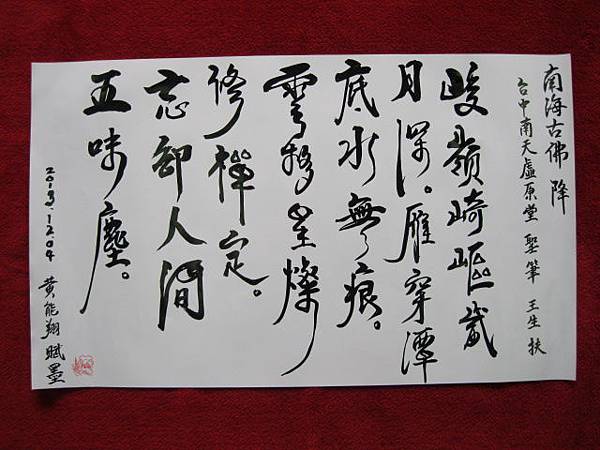 南海古佛 降
台中南天虛原堂 聖筆 王生 扶
峻嶺崎嶇歲
月深。雁穿潭
底水無痕。
雲星燦
修禪定。
忘卻人間
五味塵。
2013.12.04 黃能翔 賦墨